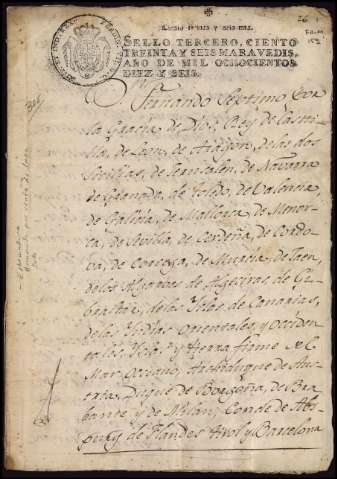 SELLO TERCERO, CIENTO
TREINTA Y SEIS MARAVEDIS,
AÑO DE MIL OCHOCIENTOS
DIEZ Y SEIS.
D. Fernando Septimo por
la Gracia de Dios, Rey de Casti-
lla, de Leon, de Aragon, de las dos
Sicilias, de Jerusalen, de Navarra
de Granada, de Toledo, de Valencia,
de Galicia, de Mallorca, de Menor-
ca, de Sevilla, de Cerdeña, de Cordo-
va, de Corcega, de Murcia, de Jaen,
de los Algarbes de Algeciras, de Gi-
braltar, de las Yslas de Canarias,
de las Yndias Orientales, y Occiden-
tales, Yslas y tierra firme del
Mar Oceano, Archiduque de Aus-
tria, Duque de Borgoña, de Bra-
bante y de Milan, Conde de Abs-
purg, de Flandes, Tirol y Barcelona